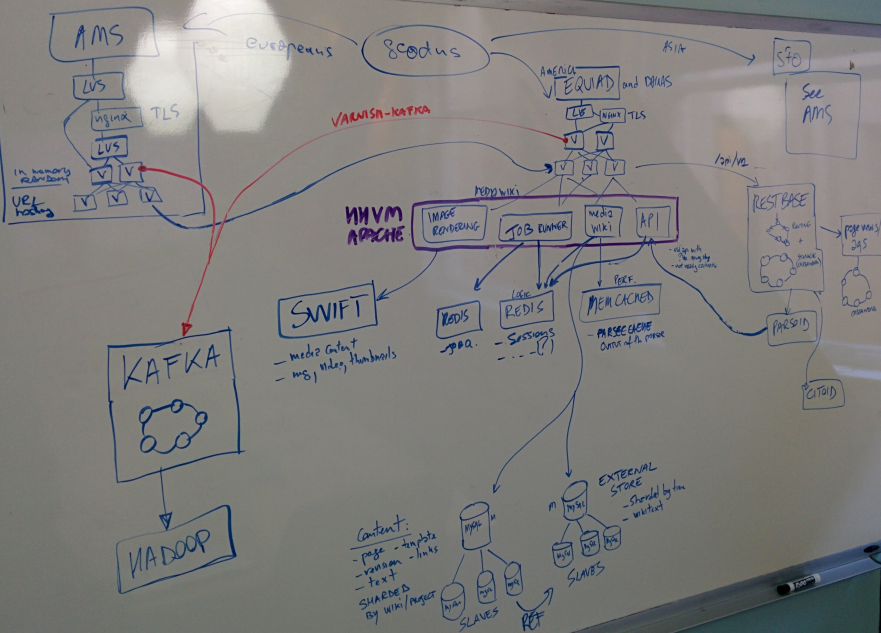 AMS
europeans
gcodns
ASIA
SFO
See
AMS
AMERICA
EQUIAD and DALLAS
LVS
nginx
TLS
LVS
V
V
in memory
V
V
V
URL
hosting
LVS
NGINX
TLS
V
V
V
V
V
VARNISH-KAFKA
MEDIAWIKI
HHVM
APACHE
IMAGE
RENDERING
JOB RUNNER
media
wiki
API
RESTBASE
+
page views/
PARSOID
CITOID
SWIFT
- media content
- img, video, thumbnails
REDIS
LOGIC
REDIS
- Sessions
- .... (?)
PERF.
MEMCACHED
- PARSER CACHE
OUTPUT of the parser
KAFKA
HADOOP
Content:
- page - template
- revision - links
- text
SHARDED
BY wiki/project
MySQL
M
MySQL
MySQL
MySQL
SLAVES
REF
EXTERNAL
STORE
- Sharded by time
- wikitext
M
MySQL
MySQL
MySQL
MySQL
SLAVES
EXPO